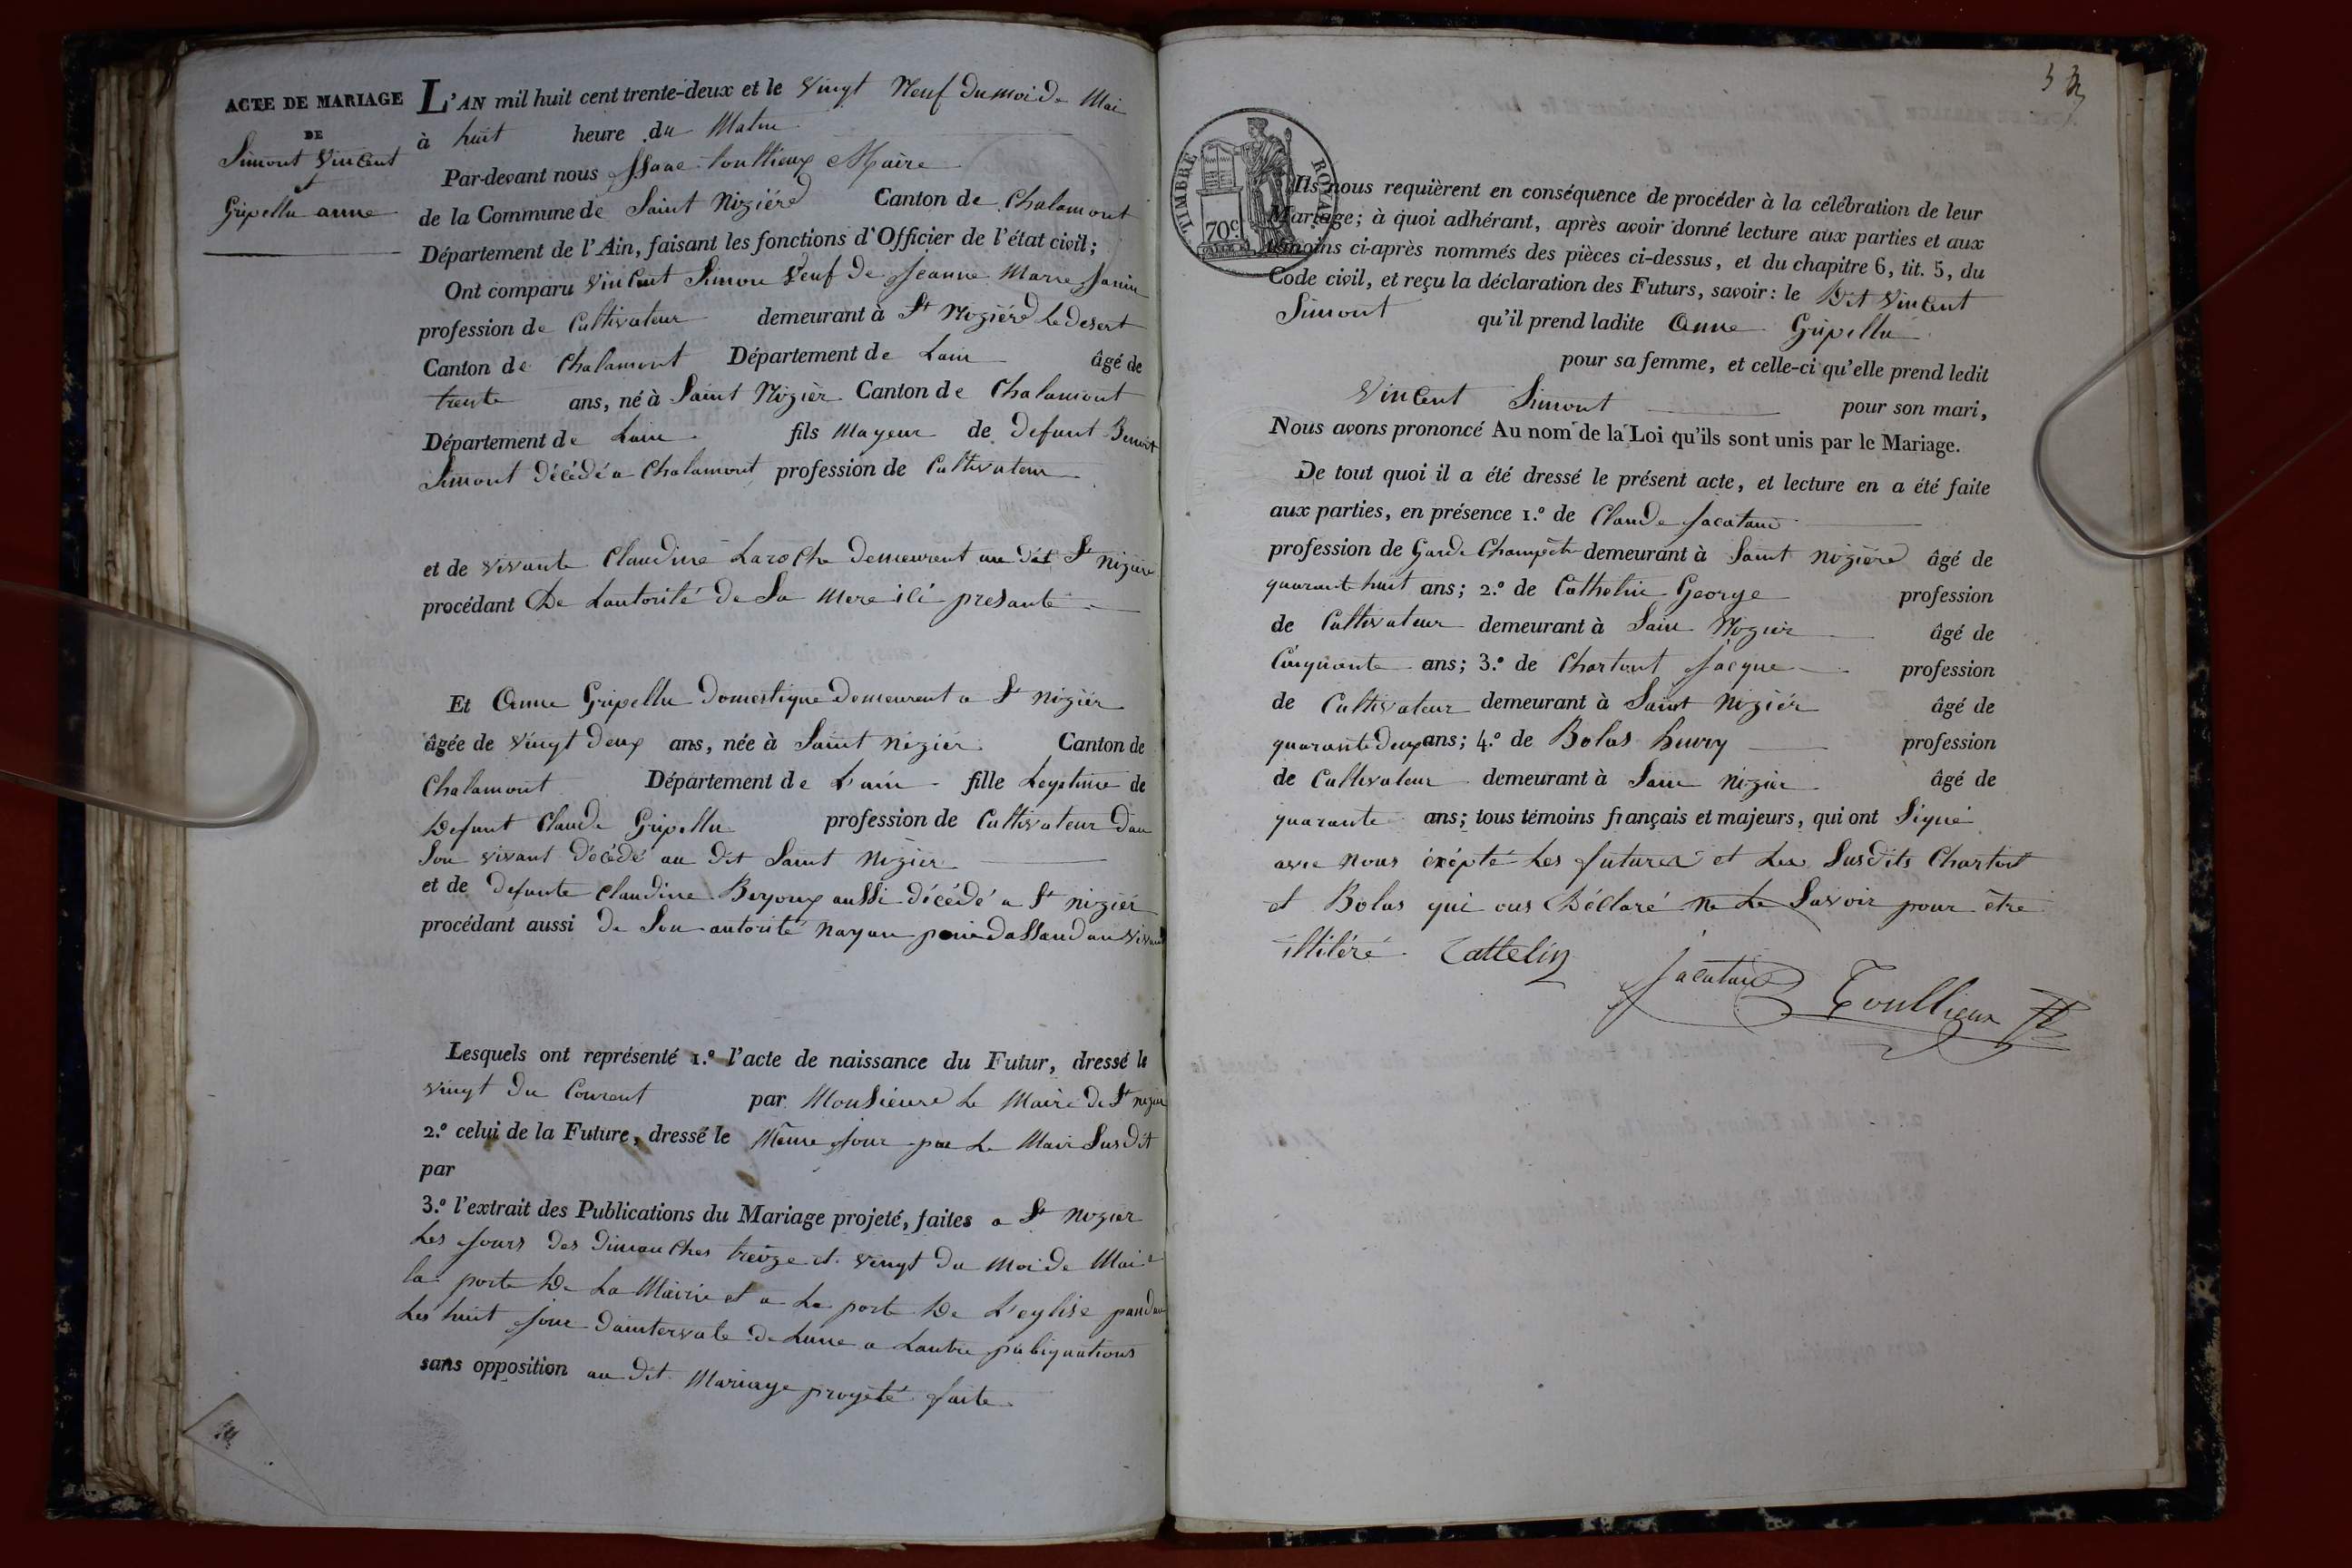 ACTE DE MARIAGE
DE
Simont Vincent
et
Gripellu anne
L'AN mil huit cent trente-deux et le vingt Neuf du moi de Mai
à huit heure du Matin
Par-devant nous Isaac toullieux Maire
de la Commune de Saint Niziérd Canton de Chalamont
Département de l'Ain, faisant les fonctions d'Officier de l'état civil;
Ont comparu Vincent Simon Veuf de Jeanne Marie Janin
profession de Cultivateur demeurant à St Niziérd le desert
Canton de Chalamont Département de Lain âgé de
trente ans, né à Saint Nizier Canton de Chalamont
Département de Lain fils Mayeur de defunt Benoit
Simont décédé a Chalamont profession de Cultivateur
et de vivante Claudine Laroche demeurent au dit St Nizier
procédant De Lautorité de Sa Mere ici presante
Et Anne Gripellu domestique demeurent a St Niziér
âgée de vingt deux ans, née à Saint niziér Canton de
Chalamont Département de L'ain fille Legitime de
Defunt Claude Gripellu profession de Cultivateur dan
Son vivant décédé au dit Saint Nizier
et de defunte Claudine Beryoux aussi décédé a St niziér
procédant aussi de Son autorité nayan poin dassandan vivant
Lesquels ont représenté 1.º l'acte de naissance du Futur, dressé le
vingt du Courent par Monsieurd le Maire de St nizier
2.º celui de la Future, dressé le Même Jour par Le Mair Susdit
par
3.º l'extrait des Publications du Mariage projeté, faites a St Nizier
Les Jours des dimanches treize et vingt du Moi de Mai a
la porte De La Mairie et a La porte De L'eglise pandan
Les huit Jour daintervale de Lune a Lautre publiquations
sans opposition au dit Mariage progeté faite
TIMBRE ROYAL
70c
Ils nous requièrent en conséquence de procéder à la célébration de leur
Mariage; à quoi adhérant, après avoir donné lecture aux parties et aux
témoins ci-après nommés des pièces ci-dessus, et du chapitre 6, tit. 5, du
Code civil, et reçu la déclaration des Futurs, savoir: le Dit Vincent
Simont qu'il prend ladite Anne Gripellu
pour sa femme, et celle-ci qu'elle prend ledit
Vincent Simont pour son mari,
Nous avons prononcé Au nom de la Loi qu'ils sont unis par le Mariage.
De tout quoi il a été dressé le présent acte, et lecture en a été faite
aux parties, en présence 1.º de Claude Jacatand
profession de Garde Champètre demeurant à Saint niziérd âgé de
quarante huit ans; 2.º de Cathelin George profession
de Cultivateur demeurant à Sain Nizier âgé de
Cinquante ans; 3.º de Chartout Jacque profession
de Cultivateur demeurant à Saint Niziér âgé de
quarante deux ans; 4.º de Bolas henry profession
de Cultivateur demeurant à Sain nizier âgé de
quarante ans; tous témoins français et majeurs, qui ont Signé
avec nous éxépté Les futures et Les Susdits Chartout
et Bolas qui ons Déclaré ne Le Savoir pour être
illitéré Cattelin
Jacatand Toullieux